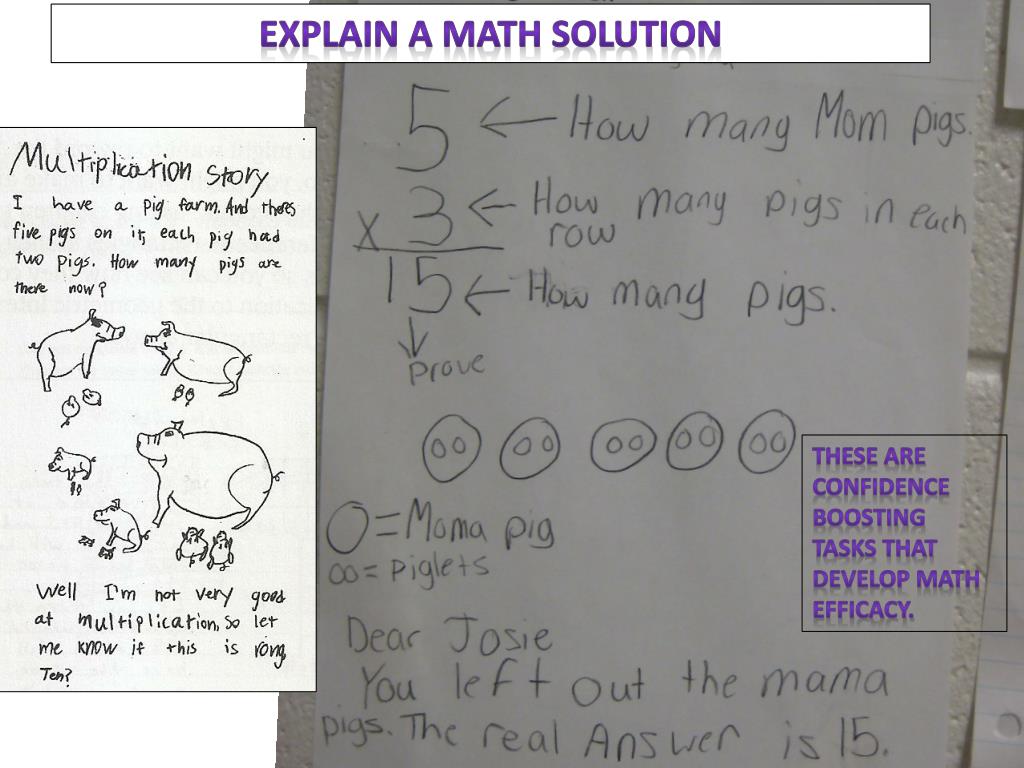 EXPLAIN A MATH SOLUTION
Multiplication Story
I have a pig farm. And theres
five pigs on it, each pig had
two pigs. How many pigs are
there now?
Well I'm not very good
at multiplication, so let
me know if this is rong
Ten?
5 ← How many Mom pigs.
x 3 ← How many pigs in each
row
15 ← How many pigs.
↓
prove
O = Mama pig
oo = piglets
Dear Josie
You left out the mama
pigs. The real Answer is 15.
THESE ARE
CONFIDENCE
BOOSTING
TASKS THAT
DEVELOP MATH
EFFICACY.